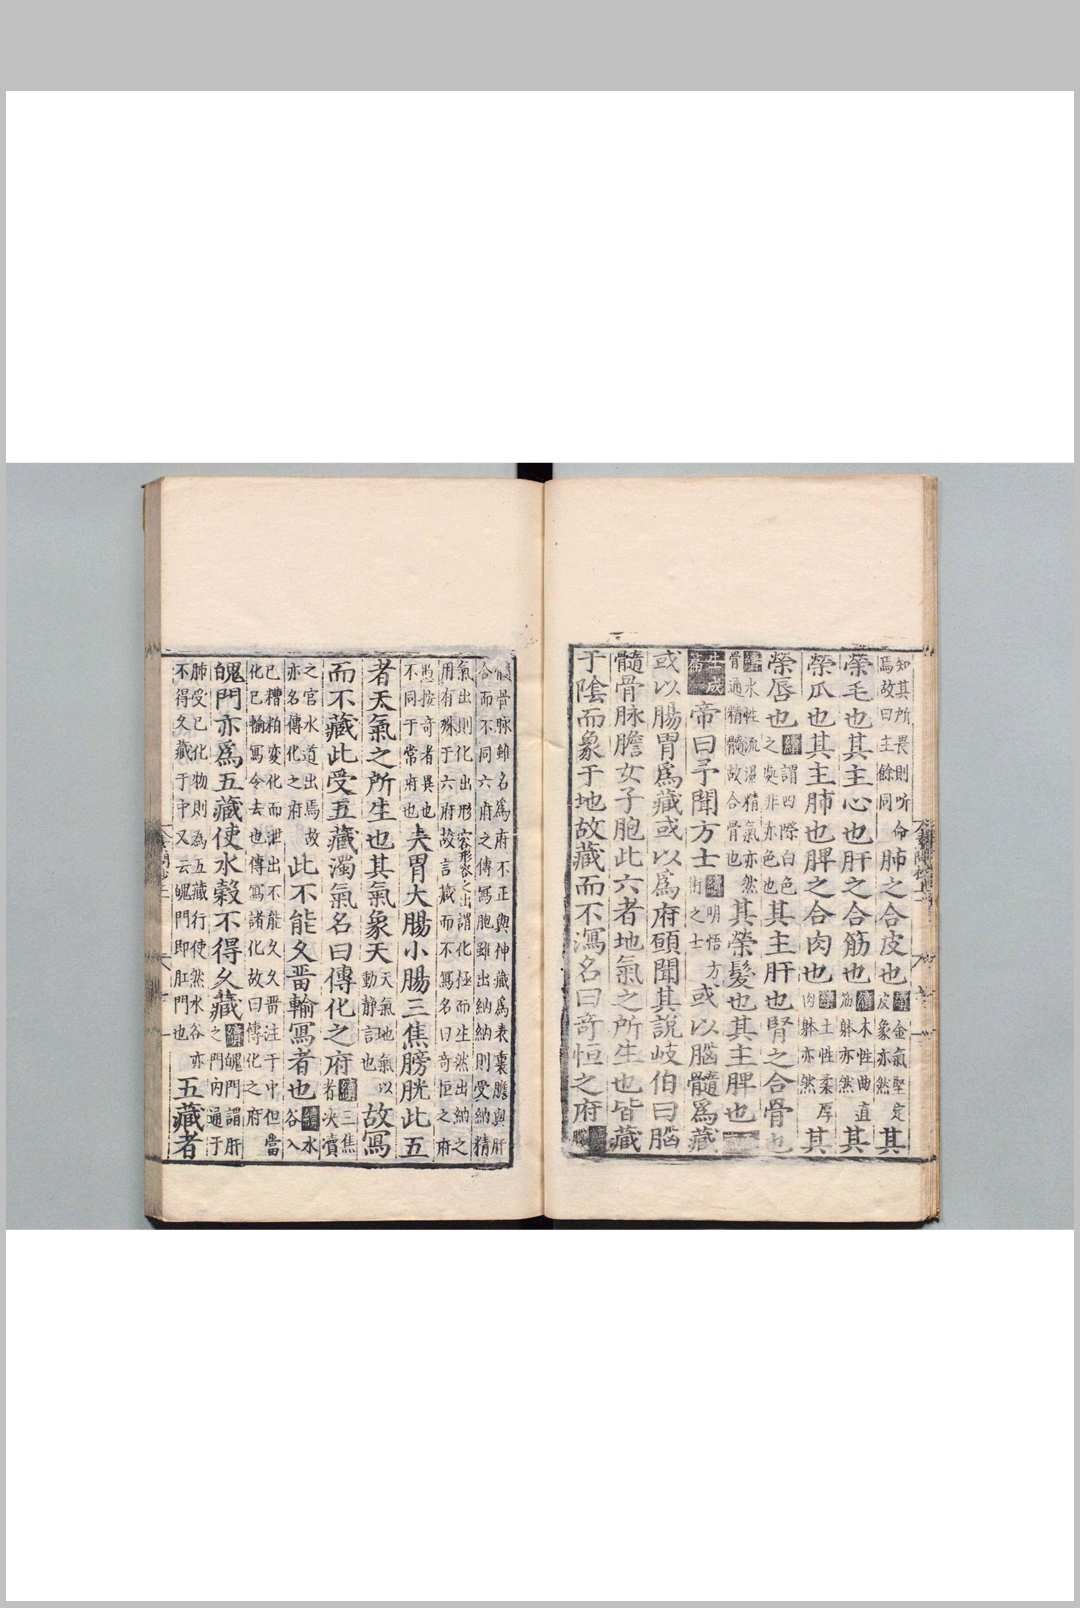 知其所畏則听命
焉故曰主餘同
肺之合皮也
金氣堅定
皮象亦然
其
榮毛也其主心也肝之合筋也
木性曲直
筋躰亦然
其
榮爪也其主肺也脾之合肉也
土性柔厚
肉躰亦然
其
榮唇也
謂四際白色
之處非赤色也
其主肝也腎之合骨也
水性流濕精氣亦然
骨通精髓故合骨也
其榮髮也其主脾也
帝曰予聞方士
明悟方
術之士
或以腦髓爲藏
或以腸胃爲藏或以爲府願聞其説岐伯曰腦
髓骨脉膽女子胞此六者地氣之所生也皆藏
于陰而象于地故藏而不瀉名曰奇恒之府
髓骨脉雖名爲府不正與神藏爲表裏膽與肝
合而不同六府之傳寫胞雖出納納則受納精
氣出則化出形容形容之出謂化極而生然出納之
用有殊于六府故言藏而不寫名曰奇恒之府
愚按奇者異也
不同于常府也
夫胃大腸小腸三焦膀胱此五
者天氣之所生也其氣象天
天氣地氣以
動靜言也
故寫
而不藏此受五藏濁氣名曰傳化之府
三焦
者决瀆
之官水道出焉故
亦名傳化之府
此不能久畱輸寫者也
水
谷入
已糟粕変化而泄出不能久久畱注于中但當
化已輸寫令去也傳寫諸化故曰傳化之府
魄門亦爲五藏使水穀不得久藏
魄門謂肝
之門內通于
肺受已化物則為五藏行使然水谷亦
不得久藏于中又云魄門即肛門也
五藏者